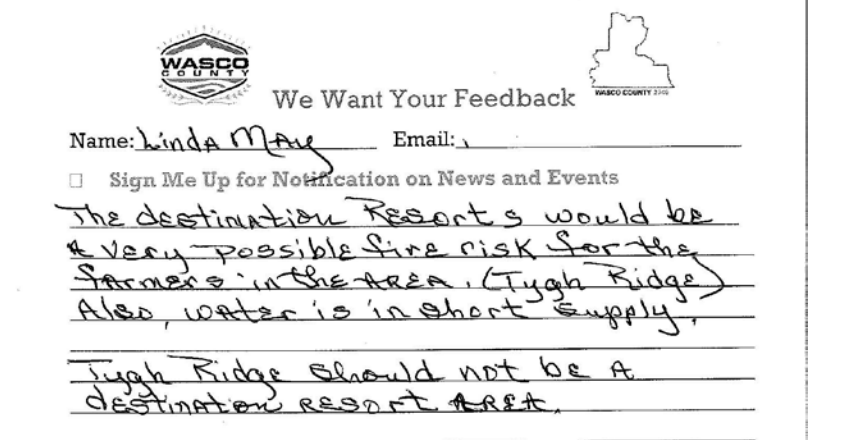 WASCO
COUNTY
WASCO COUNTY 2040
We Want Your Feedback
Name: Linda May Email:
Sign Me Up for Notification on News and Events
The destination Resorts would be
a very possible fire risk for the
farmers in the AREA. (Tygh Ridge)
Also, water is in short supply.
Tygh Ridge should not be A
destination resort AREA.